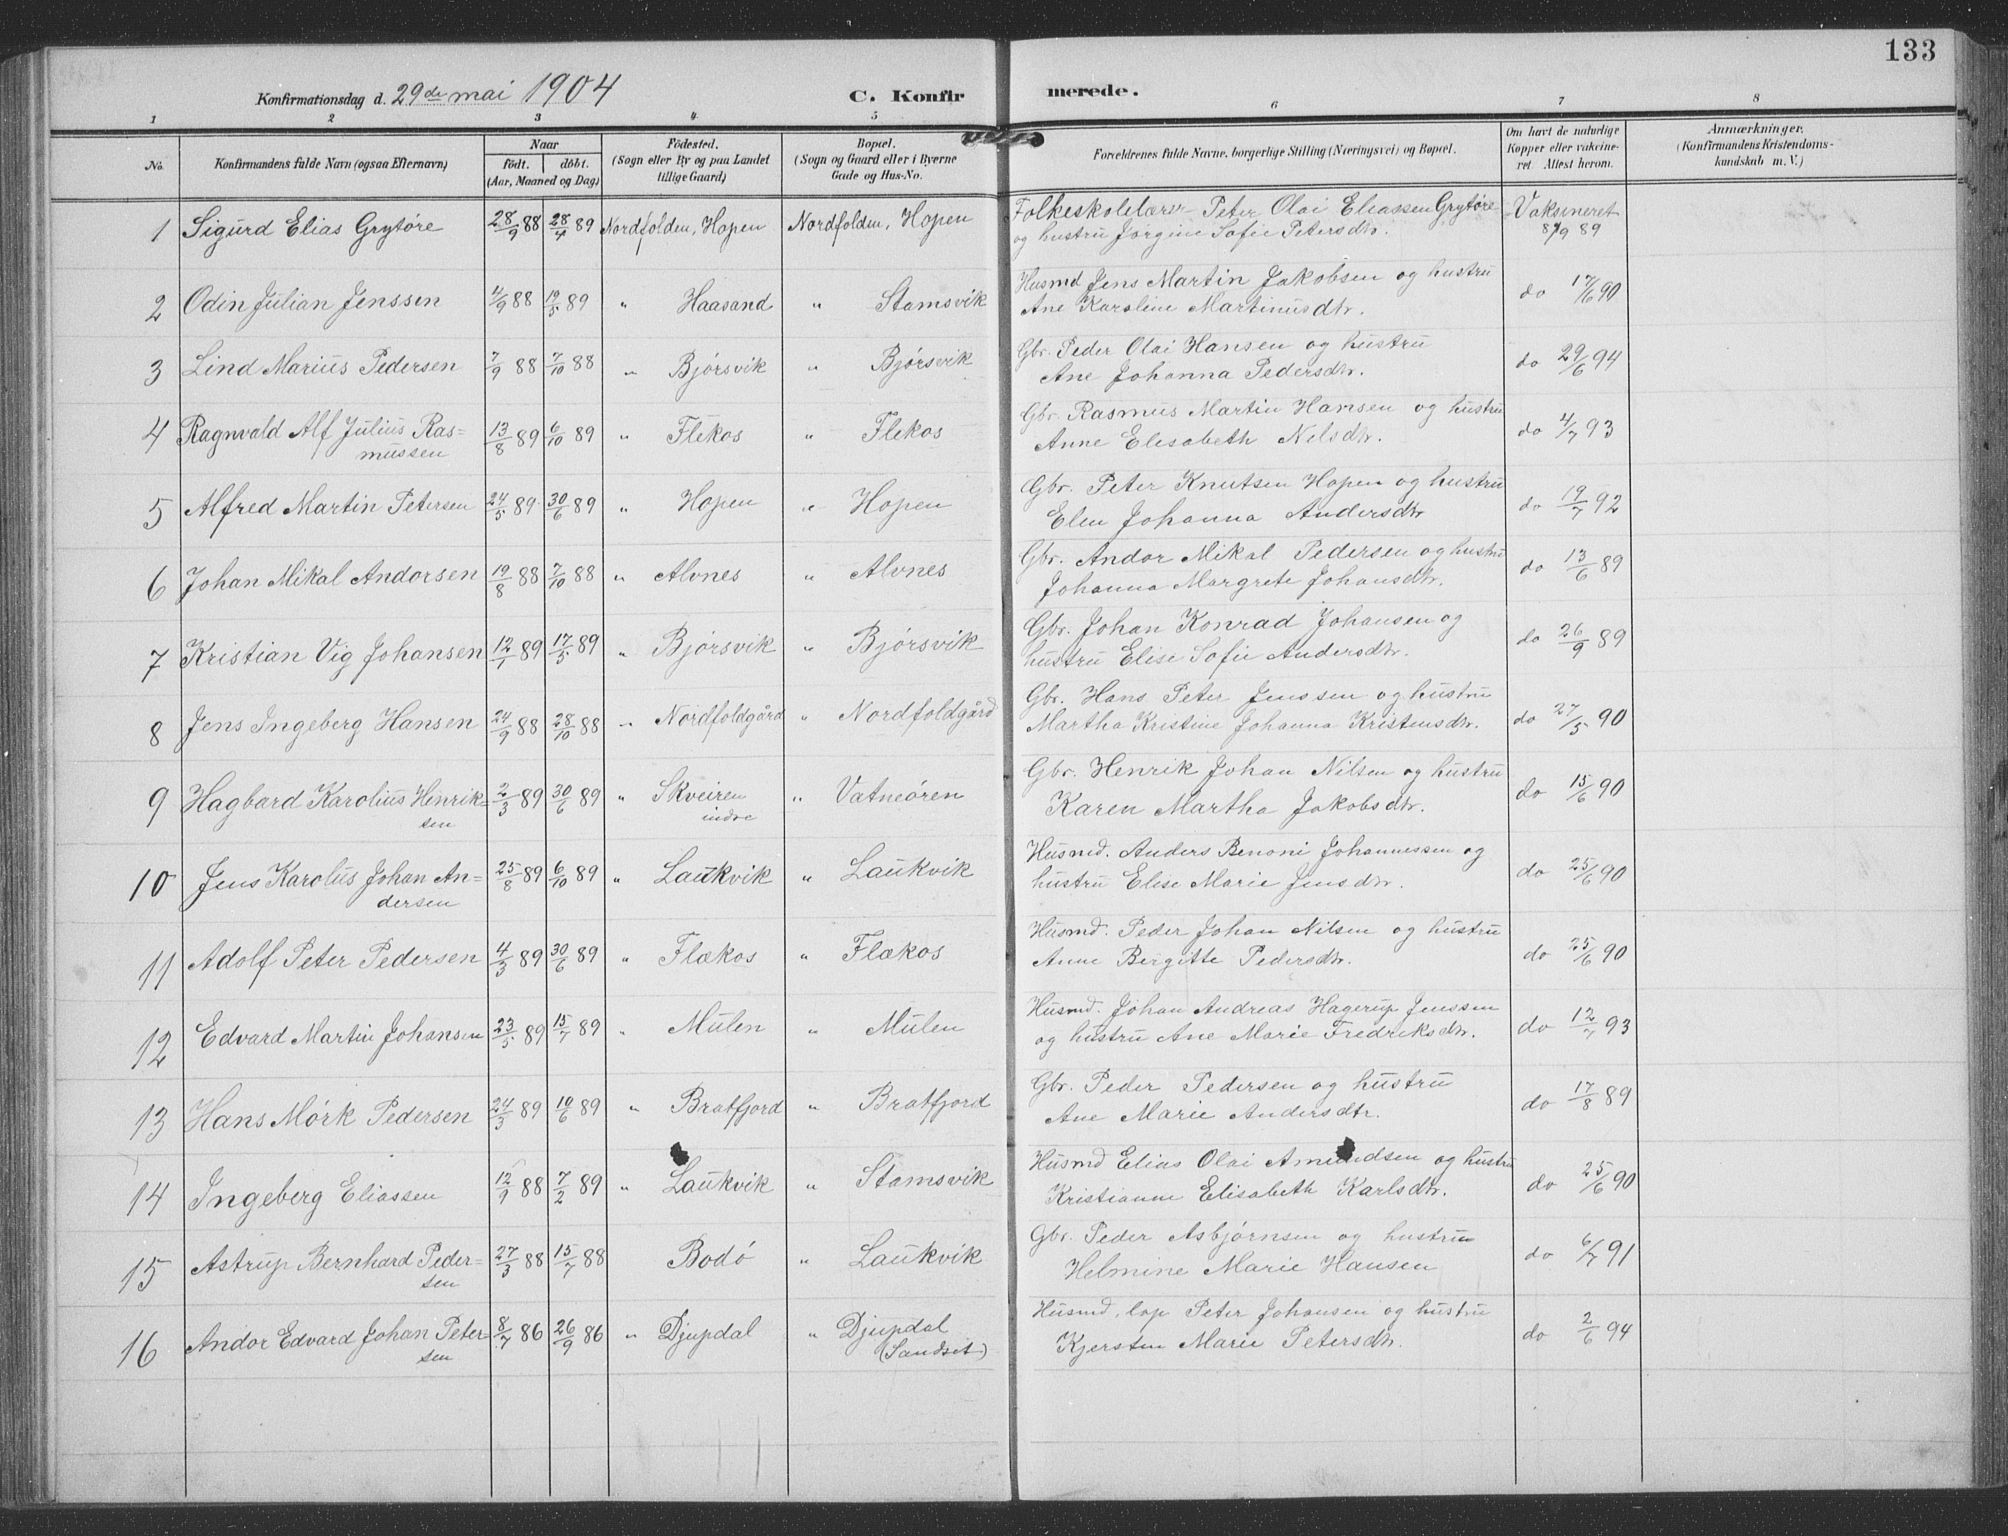 133
Konfirmationsdag d. 29de mai 1904 C. Konfirmerede.
1 2 3 4 5 6 7 8
No. Konfirmandens fulde Navn (ogsaa Efternavn) Naar født. døbt. (Aar, Maaned og Dag) Fødested. (Sogn eller By og paa Landet tillige Gaard) Bopæl. (Sogn og Gaard eller i Byerne Gade og Hus-No. Forældrenes fulde Navne, borgerlige Stilling (Næringsvei) og Bopæl. Om havt de naturlige Kopper eller vakcineret. Attest herom. Anmærkninger. (Konfirmandens Kristendomskundskab m. V.)
1 Sigurd Elias Grytøre 28/9 88 28/4 89 Nordfolden, Hopen Nordfolden, Hopen Folkeskolelærer Peter Olai Eliassen Grytøre Vaksineret
og hustru Jørgine Sofie Petersdtr. /9 89
2 Odin Julian Jenssen 4/9 88 19/5 89 " Haasand " Stamsvik Husmd Jens Martin Jakobsen og hustru do 17/6 90
Ane Karoline Martinusdtr.
3 Lind Marius Pedersen 7/9 88 7/10 88 " Bjørsvik " Bjørsvik Gbr. Peder Olai Hansen og hustru do 29/6 94
Ane Johanna Pedersdtr.
4 Ragnvald Alf Julius Ras= 13/8 89 6/10 89 " Flekos " Flekos Gbr. Rasmus Martin Hansen og hustru do 4/7 93
mussen Anne Elisabeth Nilsdtr.
5 Alfred Martin Petersen 24/5 89 30/6 89 " Hopen " Hopen Gbr. Peter Knutsen Hopen og hustru do 19/7 92
Elen Johanna Andersdtr
6 Johan Mikal Andorsen 19/8 88 7/10 88 " Alvnes " Alvnes Gbr. Andor Mikal Pedersen og hustru do 13/6 89
Johanna Margrete Johansdtr.
7 Kristian Vig Johansen 12/1 89 17/5 89 " Bjørsvik " Bjørsvik Gbr. Johan Konrad Johansen og do 26/9 89
hustru Elise Sofie Andersdtr.
8 Jens Ingeberg Hansen 24/9 88 28/10 88 " Nordfoldgård " Nordfoldgård Gbr. Hans Peter Jenssen og hustru do 27/5 90
Martha Kristine Johanna Kristensdtr.
9 Hagbard Karolius Henrik= 2/3 89 30/6 89 " Skveiren " Vatneøren Gbr. Henrik Johan Nilsen og hustru do 15/6 90
sen indre Karen Martha Jakobsdtr.
10 Jens Karolus Johan An= 25/8 89 6/10 89 " Laukvik " Laukvik Husmd. Anders Benoni Johannessen og do 25/6 90
dersen hustru Elise Marie Jensdtr.
11 Adolf Peter Pedersen 4/3 89 30/6 89 " Flækos " Flækos Husmd. Peder Johan Nilsen og hustru do 25/6 90
Anne Bergitte Pedersdtr.
12 Edvard Martin Johansen 23/5 89 15/7 89 " Mulen " Mulen Husmd. Johan Andreas Hagerup Jenssen do 12/7 93
og hustru Ane Marie Fredriksdtr.
13 Hans Mørk Pedersen 24/3 89 10/6 89 " Bratfjord " Bratfjord Gbr. Peder Pedersen og hustru do 17/8 89
Ane Marie Andersdtr.
14 Ingeberg Eliassen 12/9 88 7/2 89 " Laukvik " Stamsvik Husmd Elias Olai Amundsen og hustru do 25/6 90
Kristianne Elisabeth Karlsdtr.
15 Astrup Bernhard Peder= 27/3 88 15/7 88 Bodø " Laukvik Gbr. Peder Asbjørnsen og hustru do 6/7 91
sen Helmine Marie Hansen
16 Andor Edvard Johan Peter= 8/7 86 26/9 86 " Djupdal " Djupdal Husmd. lap Peter Johansen og hustru do 2/6 94
sen (Sandset) Kjersten Marie Petersdtr.